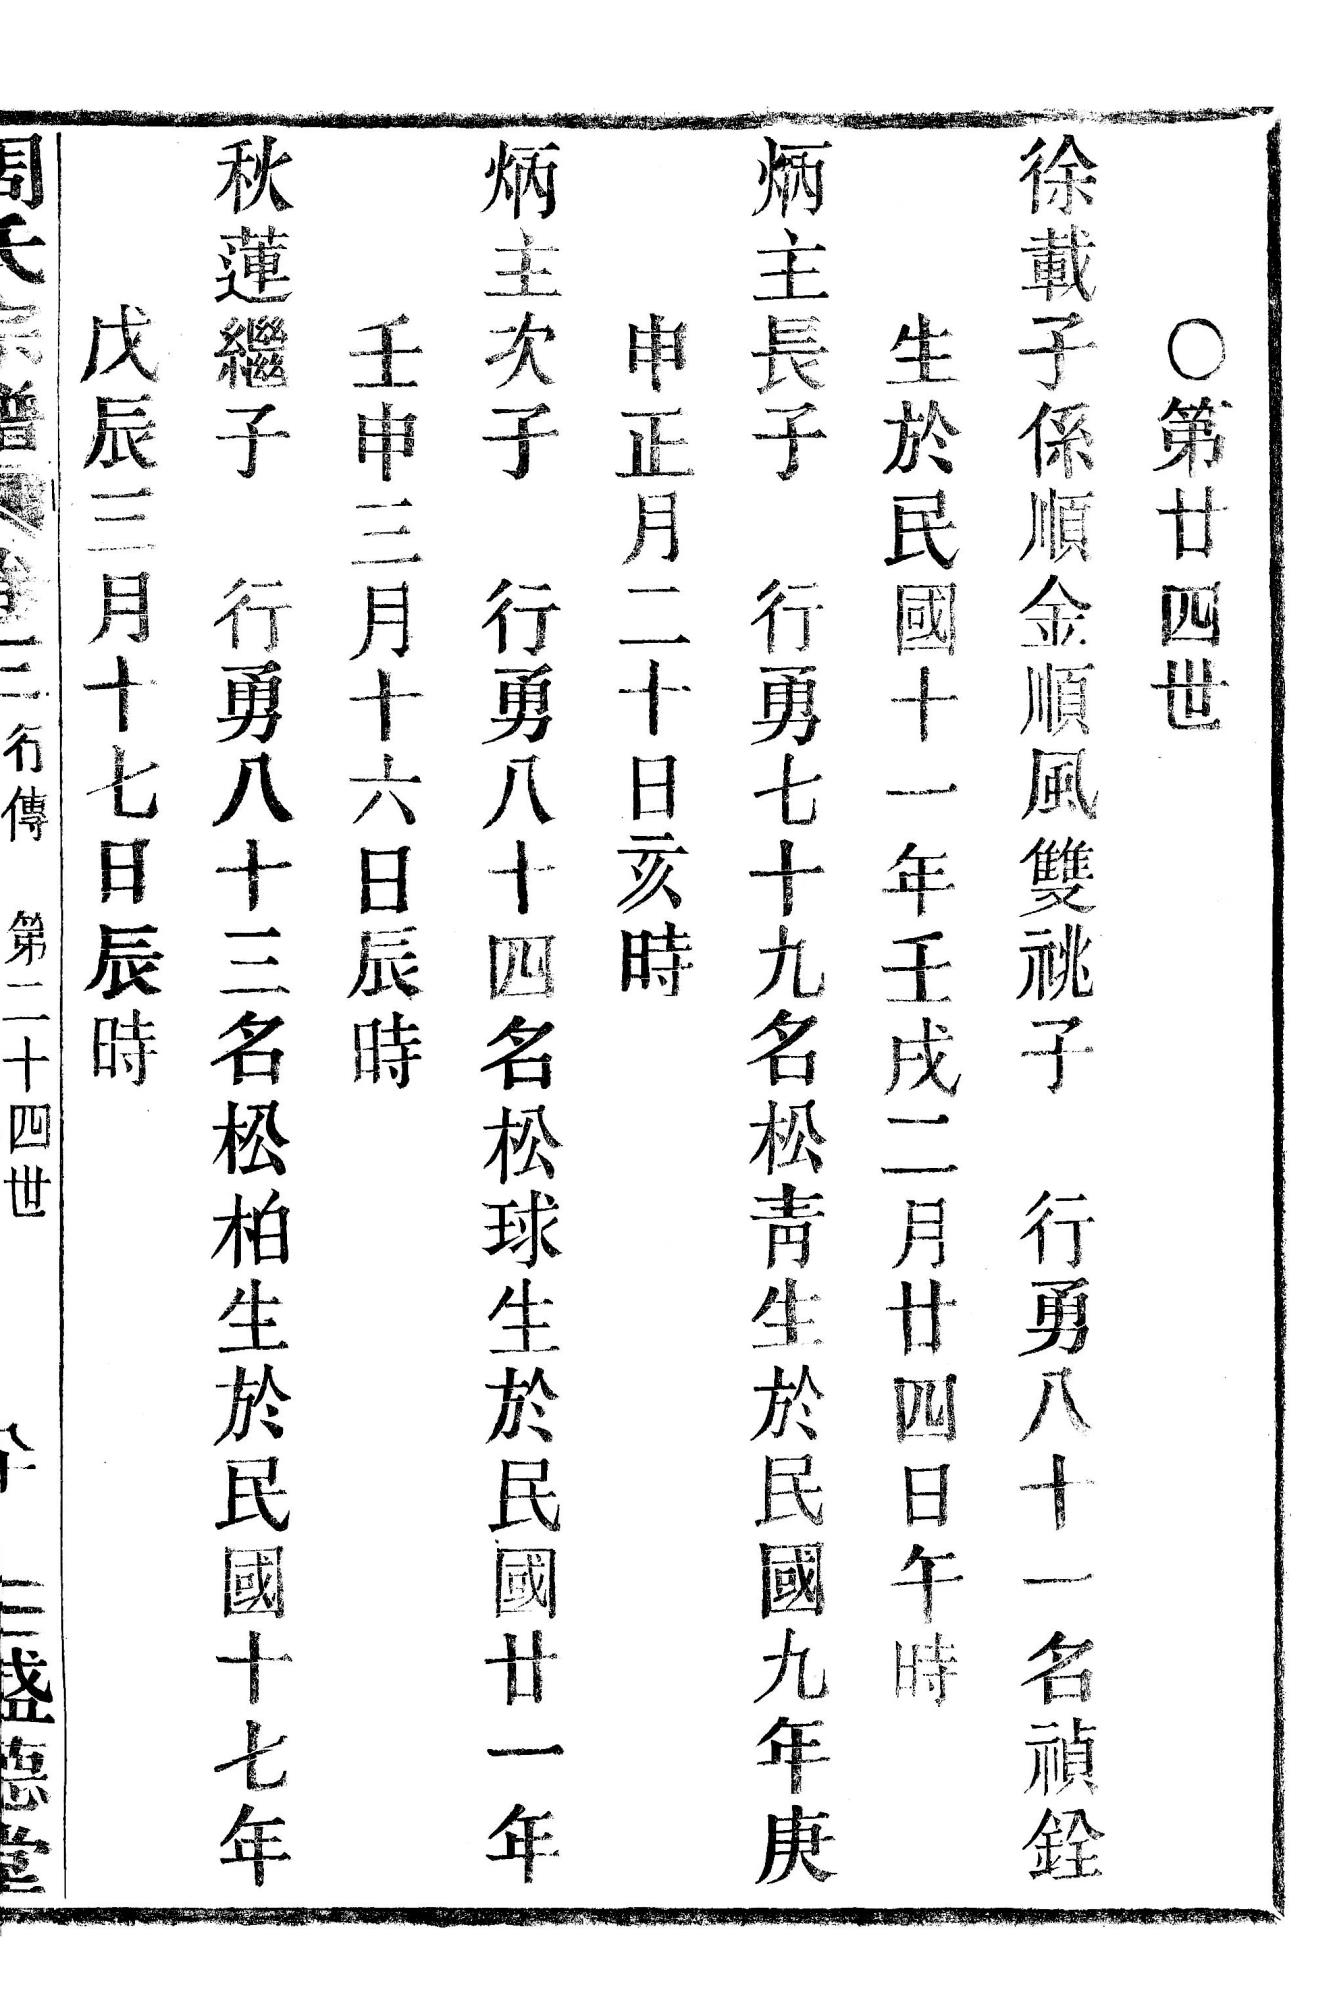 〇第廿四世
徐載子係順金順風雙祧子　行勇八十一名禎銓
生於民國十一年壬戌二月廿四日午時
炳主長子　行勇七十九名松青生於民國九年庚
申正月二十日亥時
炳主次子　行勇八十四名松球生於民國廿一年
壬申三月十六日辰時
秋蓮繼子　行勇八十三名松柏生於民國十七年
戊辰三月十七日辰時
周氏宗譜　卷三　行傳　第二十四世　盛德堂